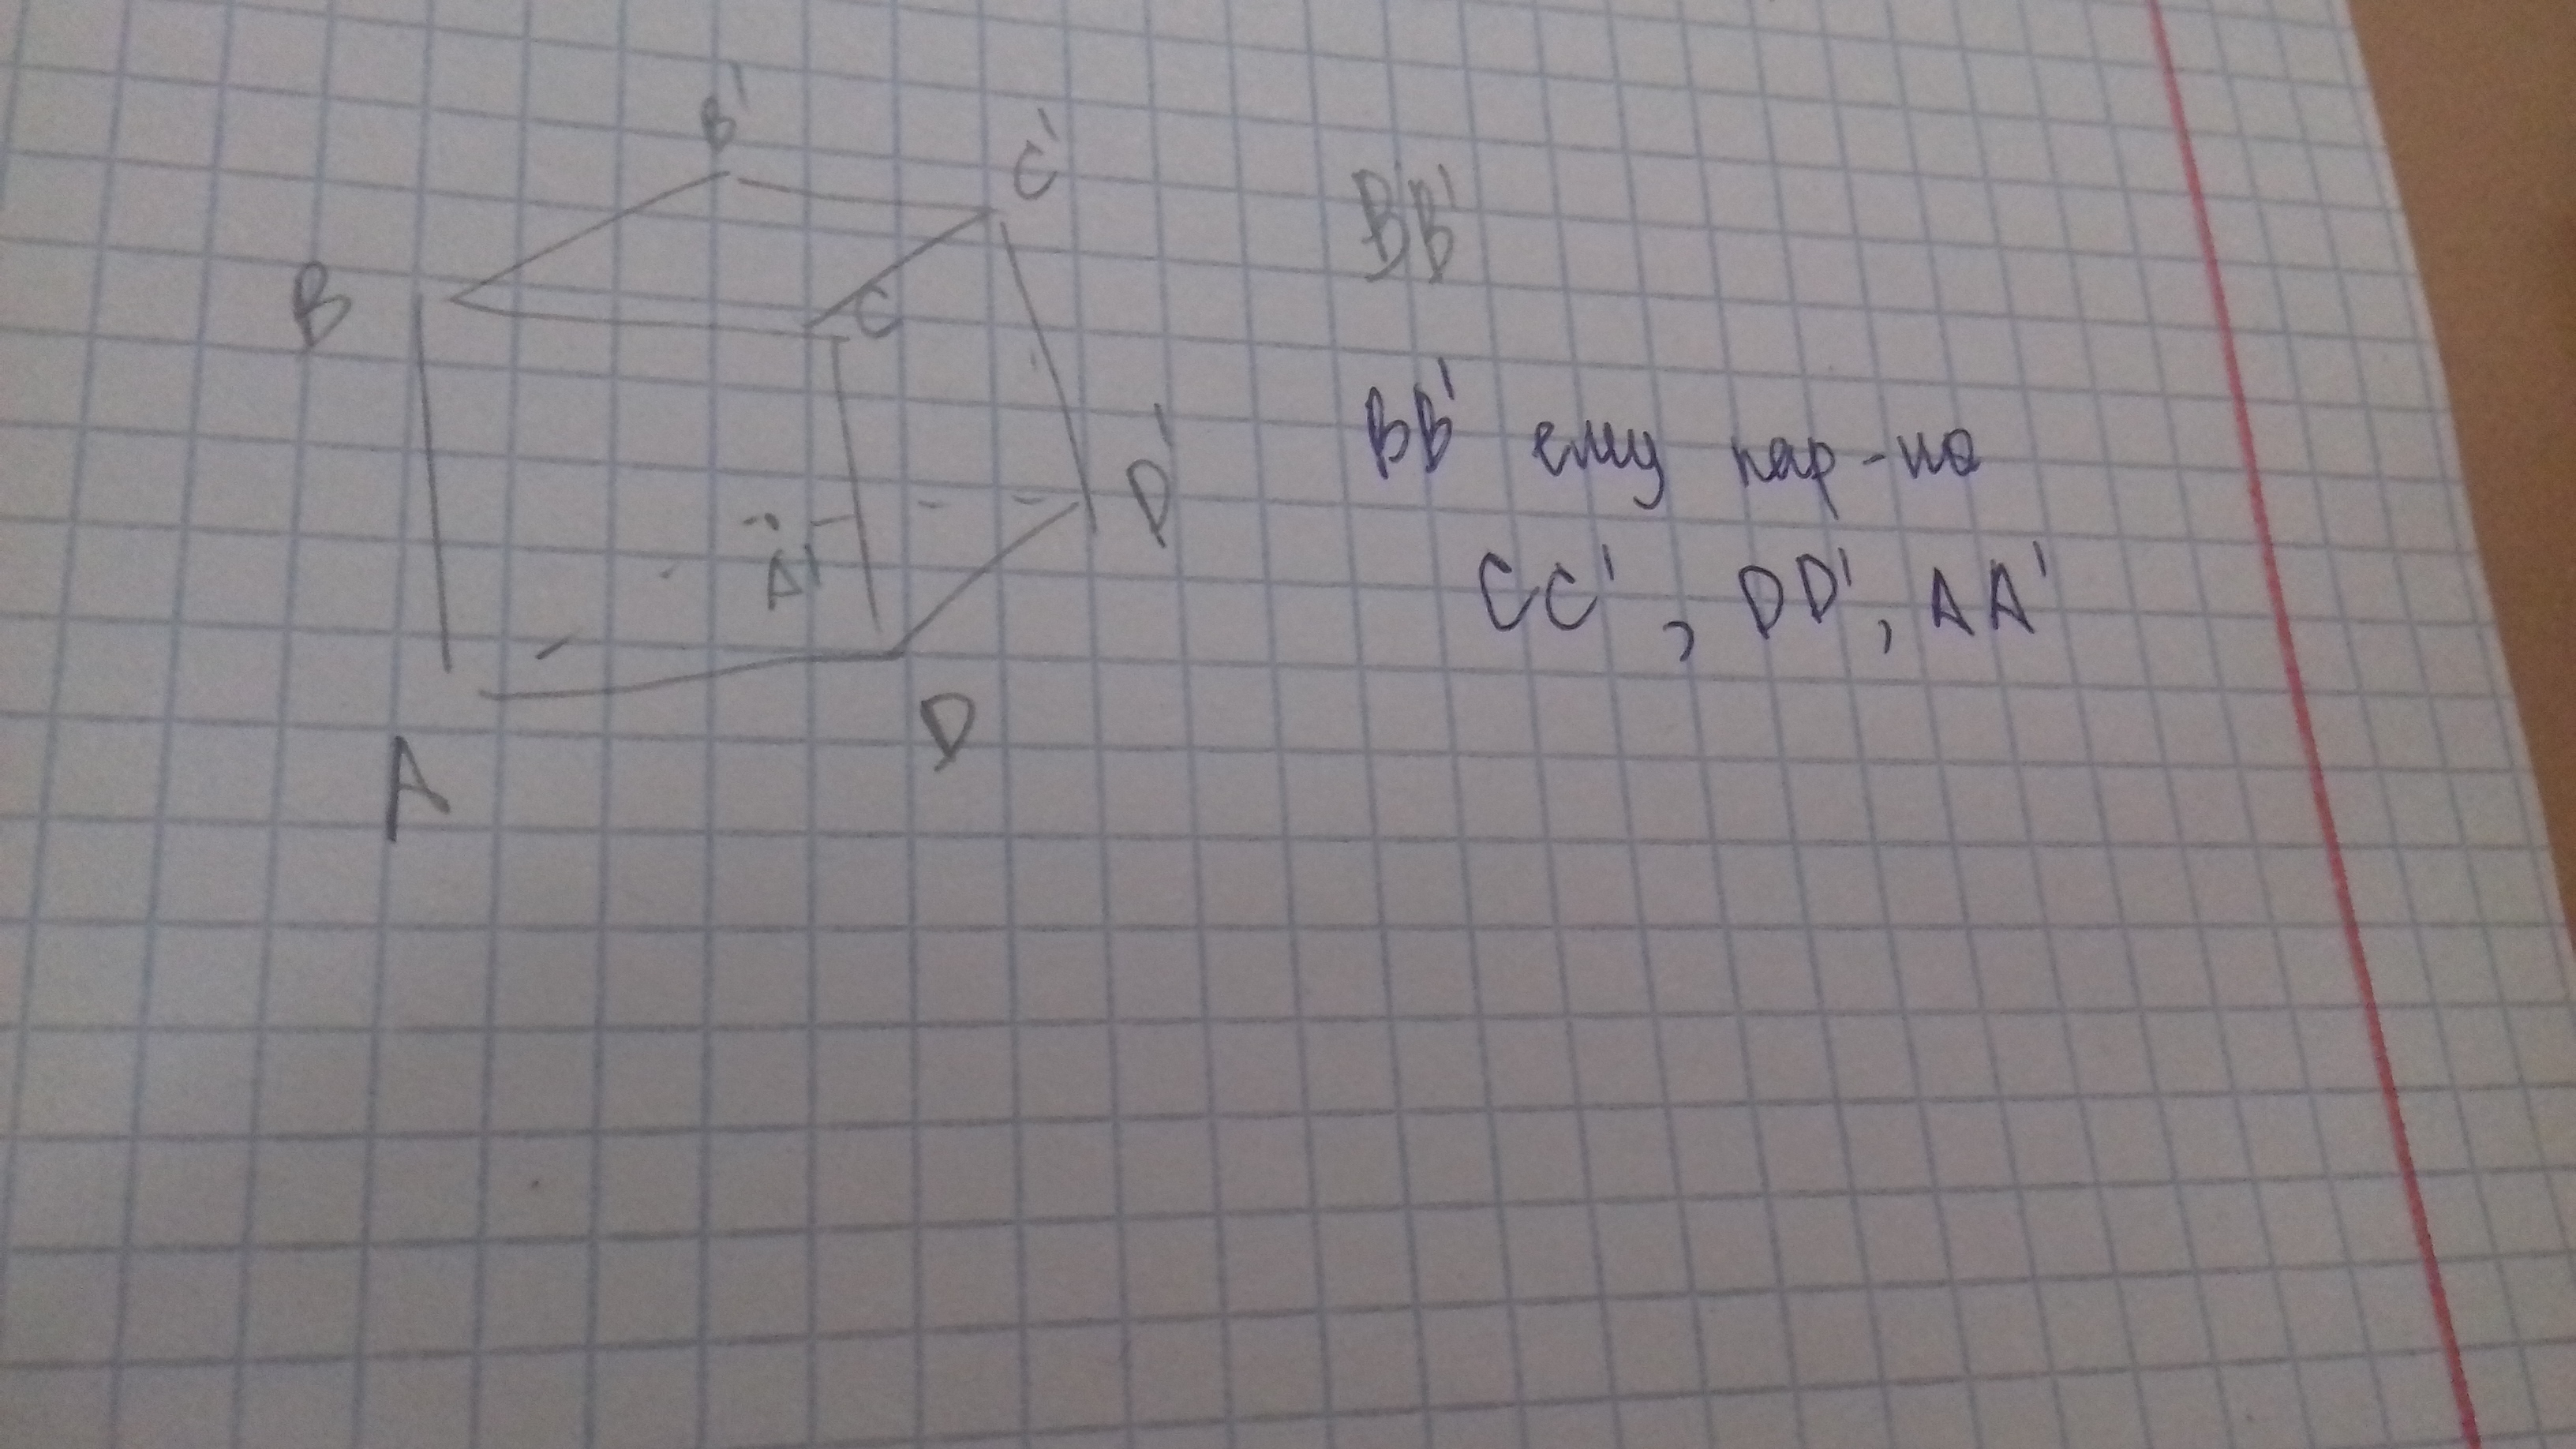 B'
C'
B
C
D'
A'
A
D
BB'
BB' ему пар-но
CC', DD', AA'